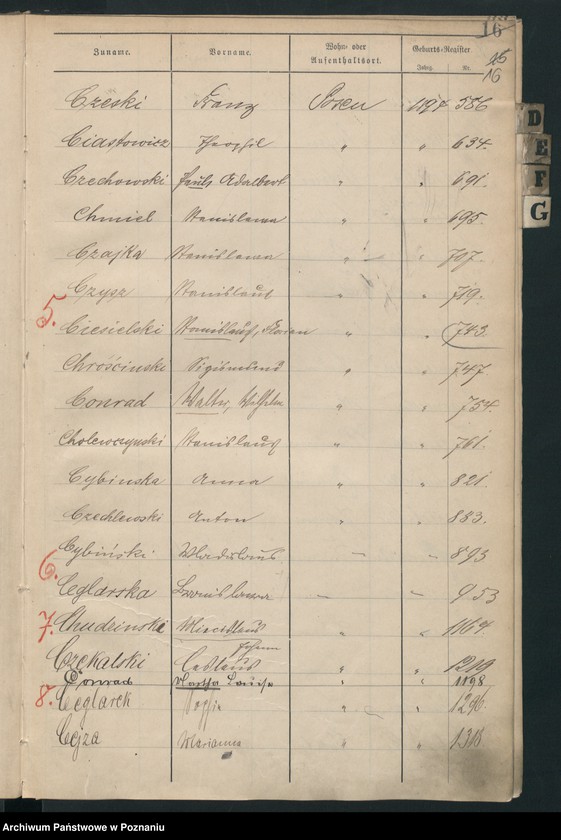 16
Zuname. Vorname. Wohn- oder Aufenthaltsort. Geburts-Register
Jahrg. Nr.
15
16
Czeski Franz Posen 1894 556
Ciastowicz Theophil " " 634.
Czechowski Pauls Adalbert " " 691.
Chmiel Stanislawa " " 695.
Czajka Stanislawa " " 707.
Czysz Stanislaus " " 719.
5.
Ciesielski Stanislaus, Florian " " 743.
Chrościnski Sigismund " " 747.
Conrad Walter, Wilhelm " " 754.
Cholewczynski Stanislaus " " 761.
Cybinska Anna " " 821.
Czechlewski Anton " " 883.
Cybiński Wladislaus – – 893
6.
Ceglarska Bronislawa – – 953
7. Chudzinski Miecislaus " " 1164
Johann
Czekalski Ceslaus " " 1219
Conrad Martha Louise " " 1198
8. Ceglarek Sophie " " 1296.
Cejza Marianna " " 1318
D
E
F
G
Archiwum Państwowe w Poznaniu